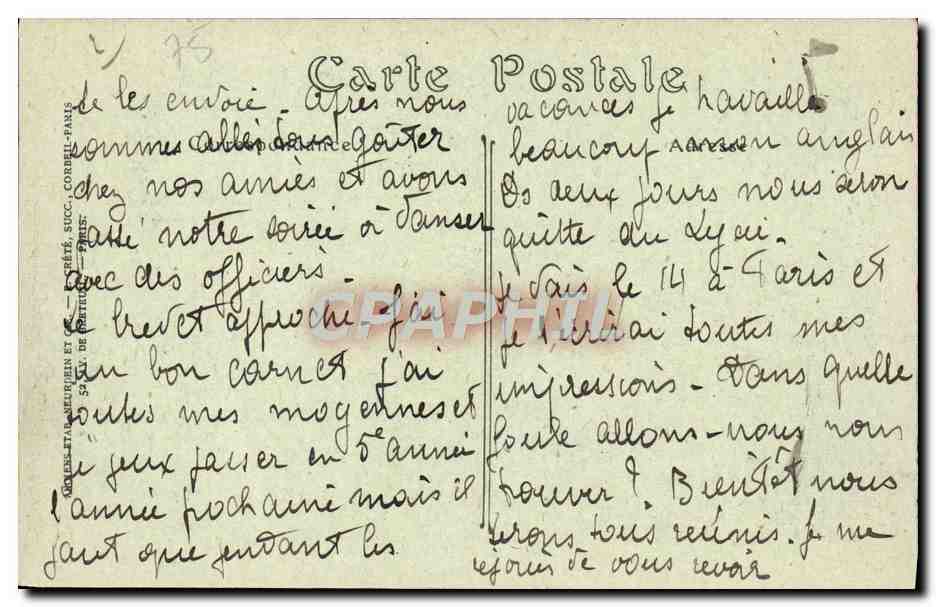 2) 75
Carte Postale
te les envoie. Après nous
sommes allés tous goûter
chez nos amies et avons
passé notre soirée à danser
avec des officiers.
Le brevet approche. J'ai
un bon carnet j'ai
toutes mes moyennes et
je peux passer en 5e année
l'année prochaine mais il
faut que pendant les
Correspondance
vacances je travaille
beaucoup mon anglais
Ds deux jours nous
quitte du Lycée.
Je vais le 14 à Paris et
je t'écrirai toutes mes
impressions - Dans quelle
foule allons-nous nous
trouver? Bientôt nous
serons tous réunis. Je me
réjouis de vous revoir
Adresse
ANCIENS ETAB. NEURDEIN ET CIE. — CRÉTÉ, SUCC., CORBEIL-PARIS
52, AV. DE BRETEUIL — PARIS.
CPAPHIL